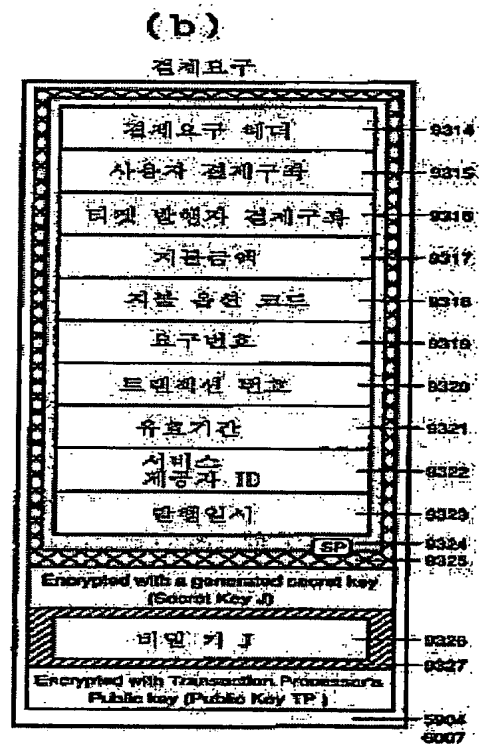 (b)
결제요구
결제요구 헤더
9314
사용자 결제구좌
9315
티켓 발행자 결제구좌
9316
지불금액
9317
지불 옵션 코드
9318
요구번호
9319
트랜잭션 번호
9320
유효기간
9321
서비스
제공자 ID
9322
발행일시
9323
SP
9324
9325
Encrypted with a generated secret key
(Secret Key J)
비밀 키 J
9326
9327
Encrypted with Transaction Processor's
Public key (Public Key TP)
5904
6007